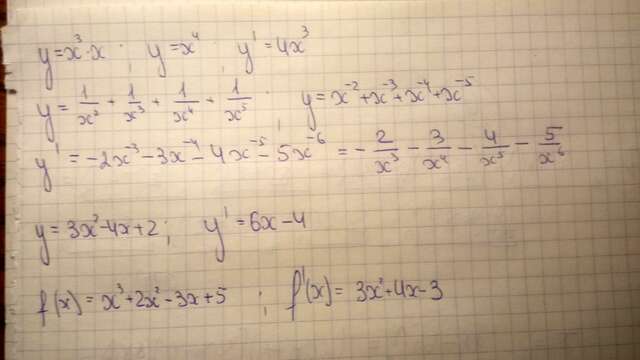 y=x³·x ; y=x⁴ ; y'=4x³
y = 1/x² + 1/x³ + 1/x⁴ + 1/x⁵ ; y=x⁻²+x⁻³+x⁻⁴+x⁻⁵
y' = -2x⁻³-3x⁻⁴-4x⁻⁵-5x⁻⁶ = - 2/x³ - 3/x⁴ - 4/x⁵ - 5/x⁶
y = 3x²-4x+2 ; y'=6x-4
f(x) = x³+2x²-3x+5 ; f'(x) = 3x²+4x-3